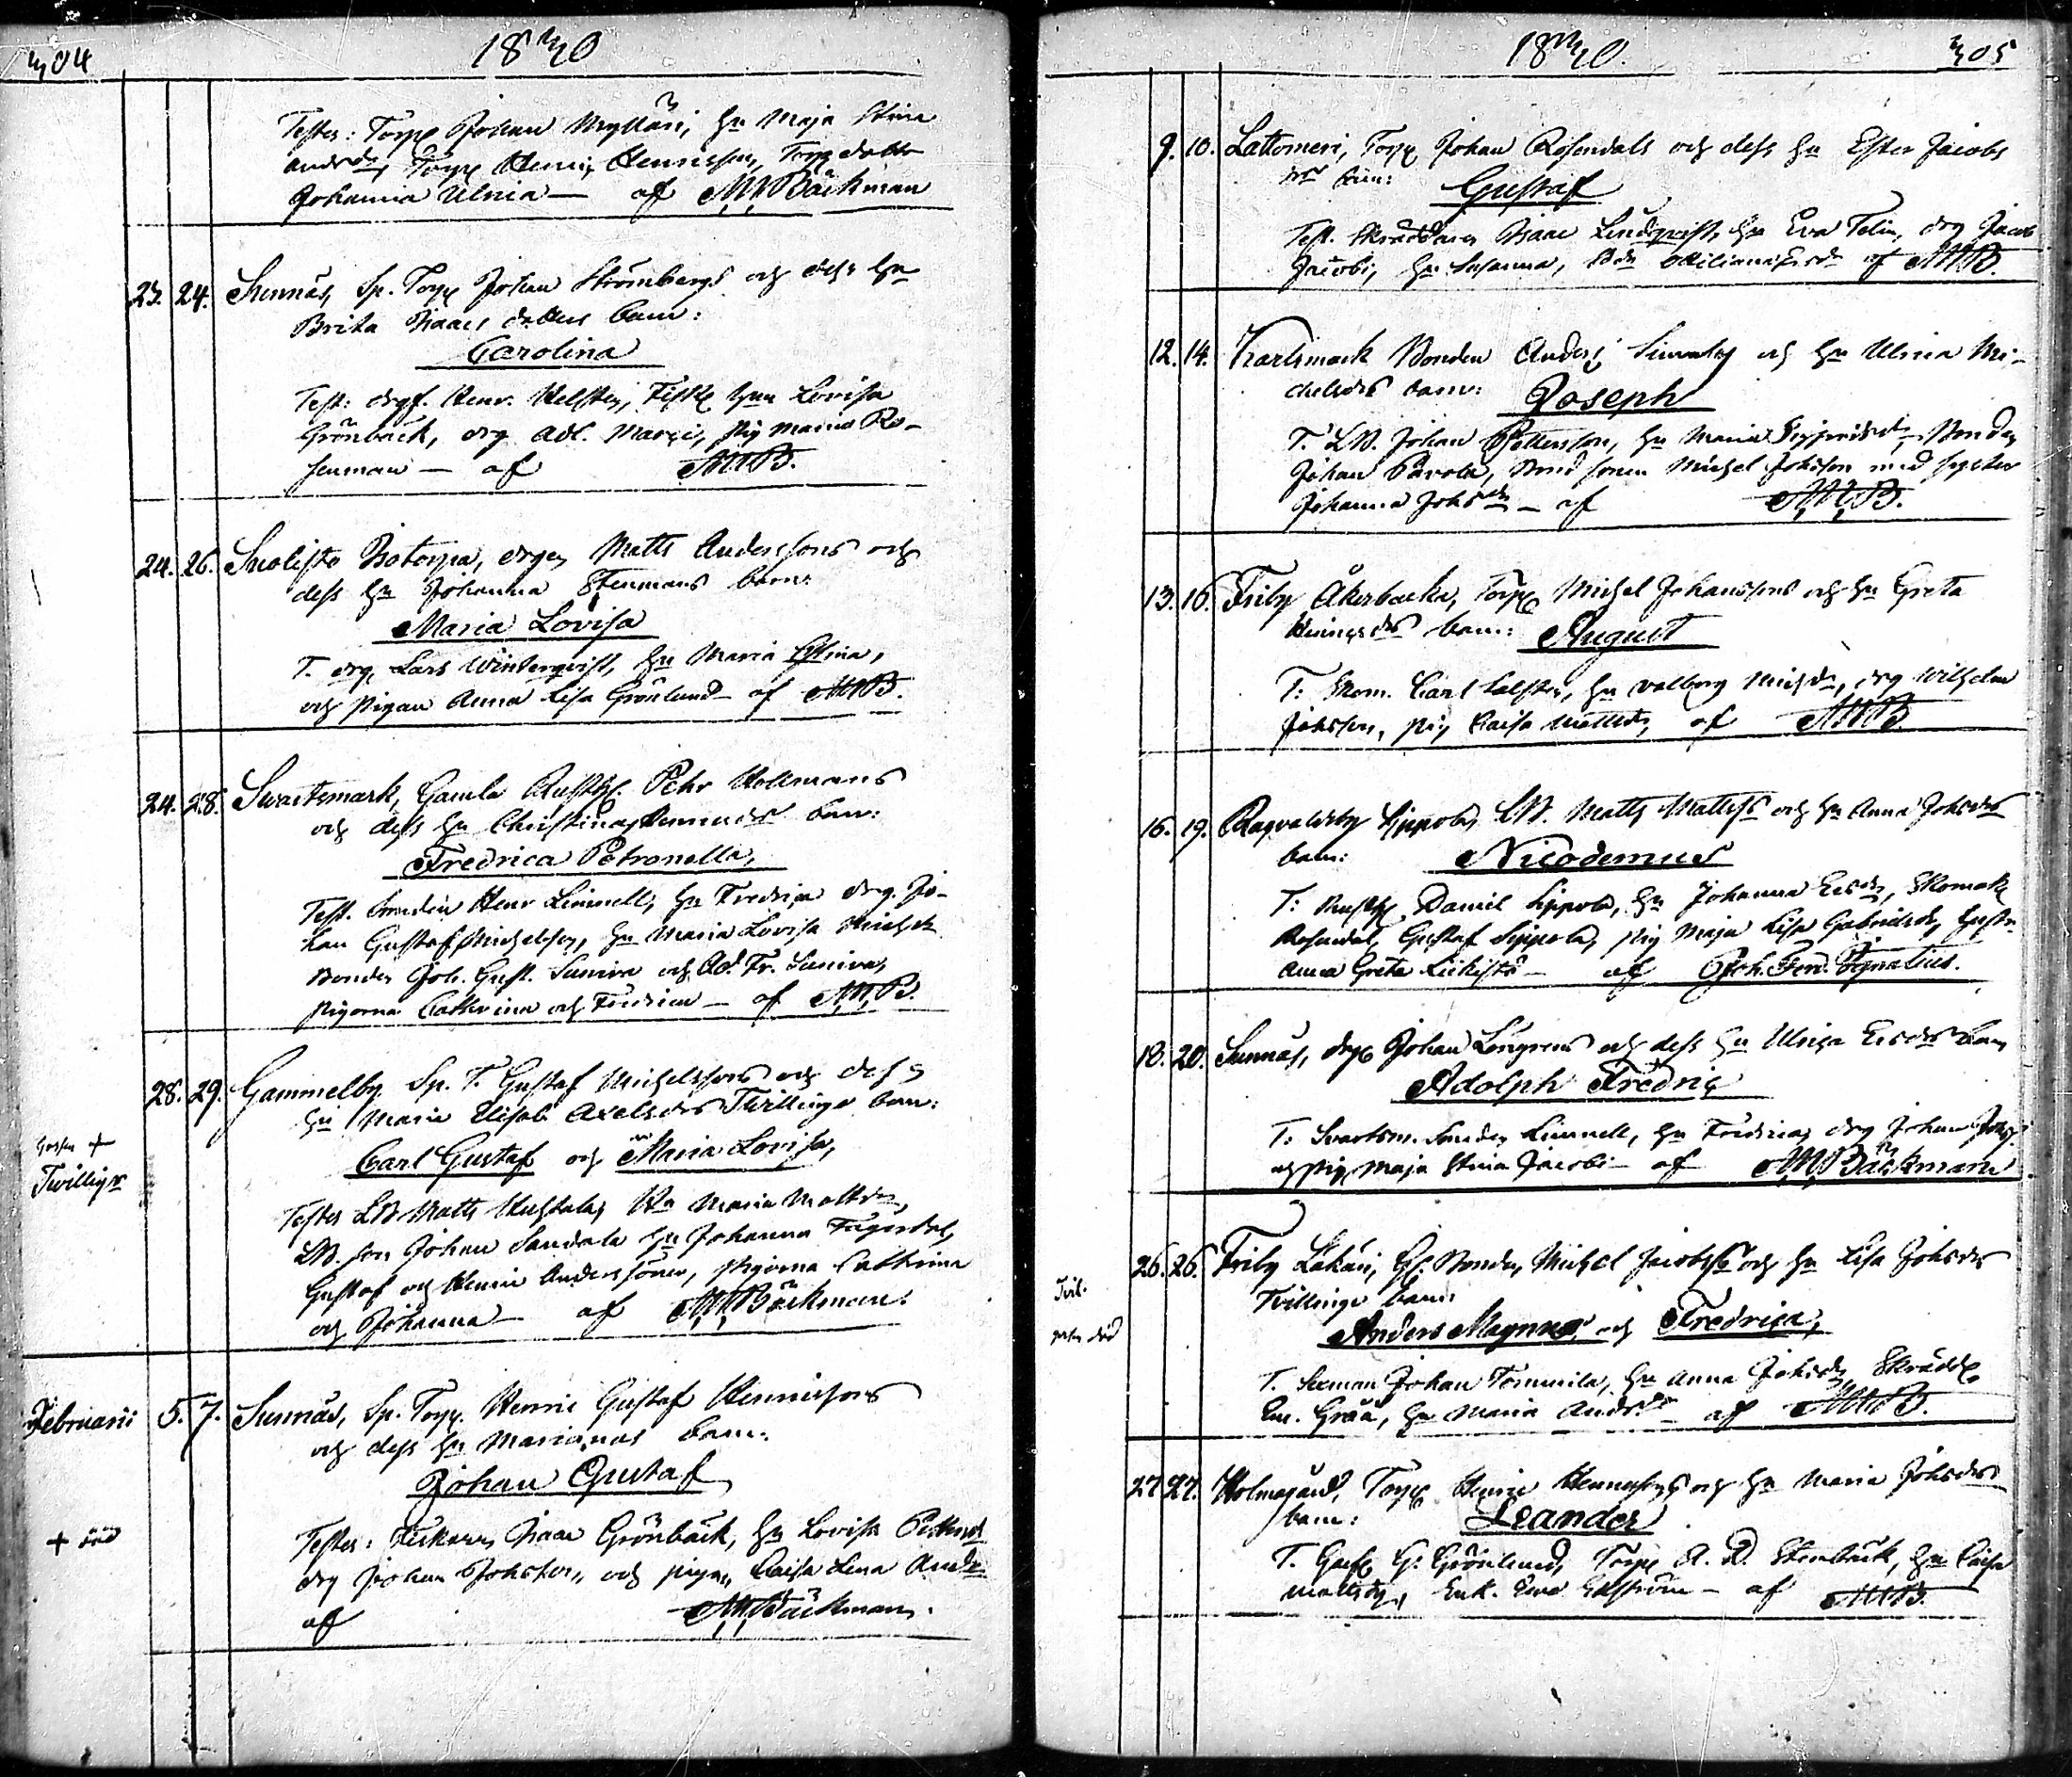 304
1830
Testes: Torp Johan Myllari, hu Maja Stina
Andrsdr, Torp Henric Henricsson, Torp dotter
Johanna Ulrica — af M, M, Bäckman
23. 24. Sunnäs, Sp. Torp Johan Strömbergs och dess hu
Brita Isaacs dotters barn:
Carolina
Test: drgf. Henr. Helsten, hun Lovisa
Grönback, drg Adl. pig Maria Ro-
senman — af MMB.
24. 26. Botorpa, drgen Matts Anderssons och
dess hu Johanna Stenmans barn:
Maria Lovisa
T. drg Lars Winterqvist, hu Maria Stina,
och pigan Anna Lisa Grönlund — af MMB.
24. 28. Swartsmark, Gamla Rusth. Pehr Hollmans
och dess hu Christina barn:
Fredrica Petronella,
Test. Henr Linnell, hu Fredrica drg. Jo-
han Gustaf Michelsson, hu Maria Lovisa
Bonden Joh. Gust. Suniva och Ad. Fr. Suniva,
pigorna Catharina och Fredrica — af M, M, B.
28. 29. Gammelby Sp. T. Gustaf Michelssons och dess
hu Maria Elisab. Axelsdrs Tvillinge barn:
Carl Gustaf och Maria Lovisa,
gossen +
Tvillingr
Testes LB Matts hu Maria Mattsdr,
LB. son Johan Sandala hu Johanna Fagerdal,
Gustaf och Henric Anderssöner, pigorna Cathrina
och Johanna — af M, M, Bäckman.
Februarii 5. 7. Sunnäs, Sp. Torp. Henric Gustaf Henricssons
och dess hu Marianas barn:
Johan Gustaf
+ död
Testes: Fiskaren Isaac Grönback, hu Lovisa
drg Johan Johsson, och pigan Caisa Lena Andr
af M, M, Bäckman.
1830.
305
9. 10. Lattomeri, Torp Johan Rosendals och dess hu Ester Jacobs
drs barn: Gustaf
Test. Skräddaren Isaac Lindqvist, hu Eva Telin, drg Jacob
Jacobs, hu Susanna, af MMB.
12. 14. Karlsmark Bonden Anders och hu Ulrica Mi-
chelsdrs barn: Joseph
T. LB. Johan Pettersson, hu Maria Sigfridsdr, Bonden
Johan Pavola, Bond sonen Michel Johsson med syster
Johanna Johsdr — af M, M, B.
13. 16. Friby Åkerbacka, Torp Michel Johanssons och hu Greta
Henricsdrs barn: August
T: Skom. Carl hu Valborg Michsdr, drg Wilhelm
Johsson, pig Caisa Mattsdr, af MMB.
16. 19. Ragvaldsby Sippola, LB. Matts Mattss och hu Anna Johsdrs
barn: Nicodemus
T: Rusth. Daniel Sippola, hu Johanna Ersdr, Skomak
Rosendal, Gustaf Sippola, pig Maja Lisa Gabrielsdr, hustr
Anna Greta — af Joh. Ferd. Ignatius.
18. 20. Sunnäs, drg Johan Löngrens och dess hu Ulrica Ersdrs barn
Adolph Fredric
T: Svartsm. Linnell, hu Fredrica, drg Johan
och pig Maja Stina Jacobs — af M, M, Bäckman
26. 26. Friby Bonden Michel Jacobss och hu Lisa Johsdrs
Tvillinge barn:
Tvil.
Anders Magnus och Fredrica,
död
T. Seeman Johan Tommila, hu Anna Johsdr, Skrädd
Em. Grää, hu Maria Andsdr — af MMB.
27. 27. Torp Henric Henricssons och hu Maria Johsdrs
barn: Leander
T. G. Grönlund, Torp A. D. Stenbäck, hu Caisa
Mattsdr, Enk. Eva — af MMB.